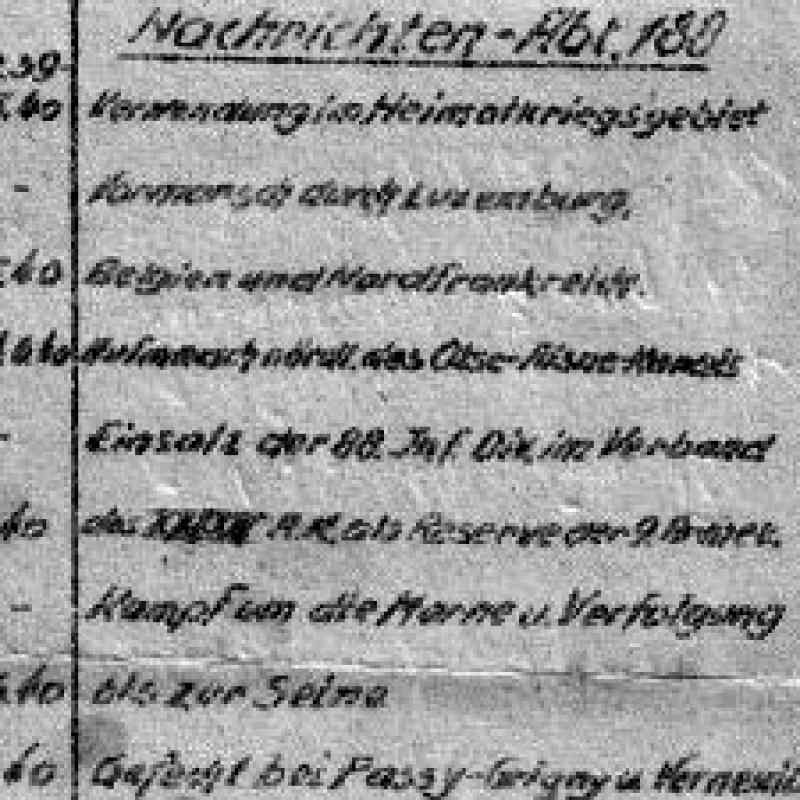 Nachrichten-Abt. 188
.39-
.40 Verwendung im Heimatkriegsgebiet
- Vormarsch durch Luxemburg,
.40 Belgien und Nordfrankreich.
.40 Aufmarsch nördl. des Oise-Aisne-Kanals
- Einsatz der 88. Inf. Div. im Verband
.40 des A.K. als Reserve der 9. Armee.
- Kampf um die Marne u. Verfolgung
.40 bis zur Seine
.40 Gefecht bei Passy-Grigny u.